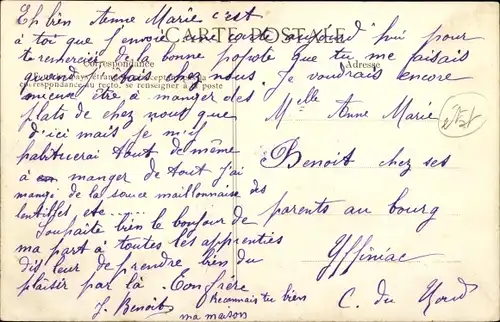 Eh bien Anne Marie c'est
CARTE POSTALE
à toi que j'envoie une carte aujourd'hui pour
te remercier de la bonne popote que tu me faisais
Correspondance
Adresse
quand j'étais chez nous. je voudrais encore
correspondance au recto, se renseigner à la poste
mieux être à manger des
plats de chez nous que
d'ici mais je m'y
habituerai tout de même
à manger de tout j'ai
mangé de la sauce maillonnaise des
lentilles etc ....
Souhaite bien le bonjour de
ma part à toutes les apprenties
dis leur de prendre bien du
plaisir par là. Ton frère
J. Benoit
Reconnais tu bien
ma maison
Melle Anne Marie
Benoit chez ses
parents au bourg
Yffiniac
C. du Nord